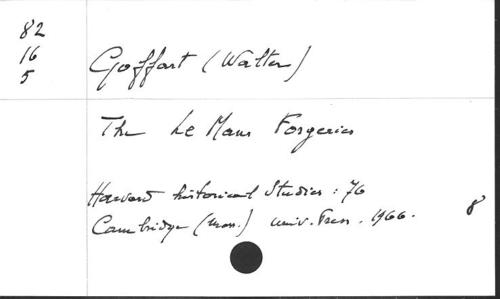 82
16
5
Goffart (Walter)
The Le Mans Forgeries
Harvard historical Studies : 76
Cambridge (Mass.) Univ. Press. 1966.
8